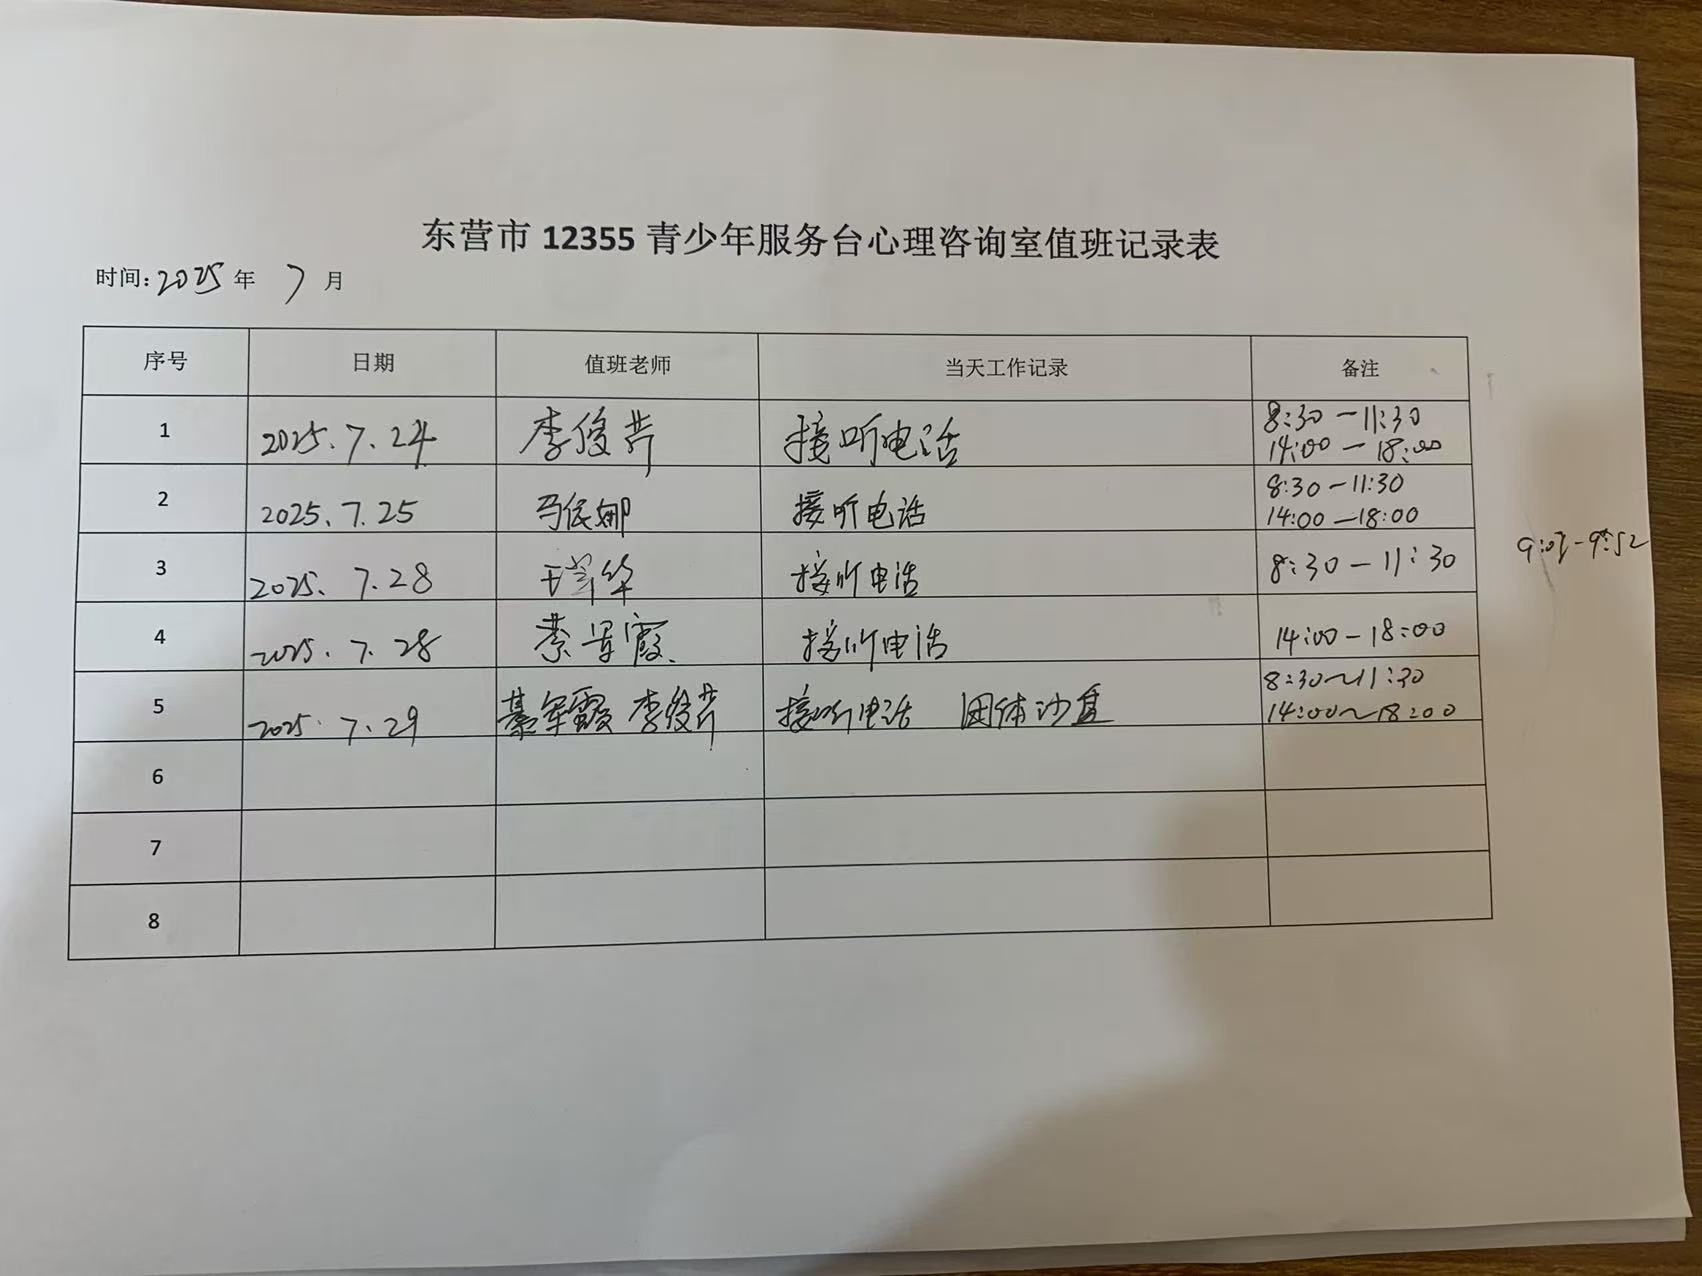 东营市 12355 青少年服务台心理咨询室值班记录表
时间: 2025 年 7 月
序号 日期 值班老师 当天工作记录 备注
1 2025.7.24 李俊芳 接听电话 8:30-11:30
14:00-18:00
2 2025.7.25 马 娜 接听电话 8:30-11:30
14:00-18:00
3 2025.7.28 华 接听电话 8:30-11:30
9:07-9:52
4 2025.7.28 綦军霞 接听电话 14:00-18:00
5 2025.7.29 綦军霞 李俊芳 接听电话 团体沙盘 8:30~11:30
14:00~18:00
6
7
8